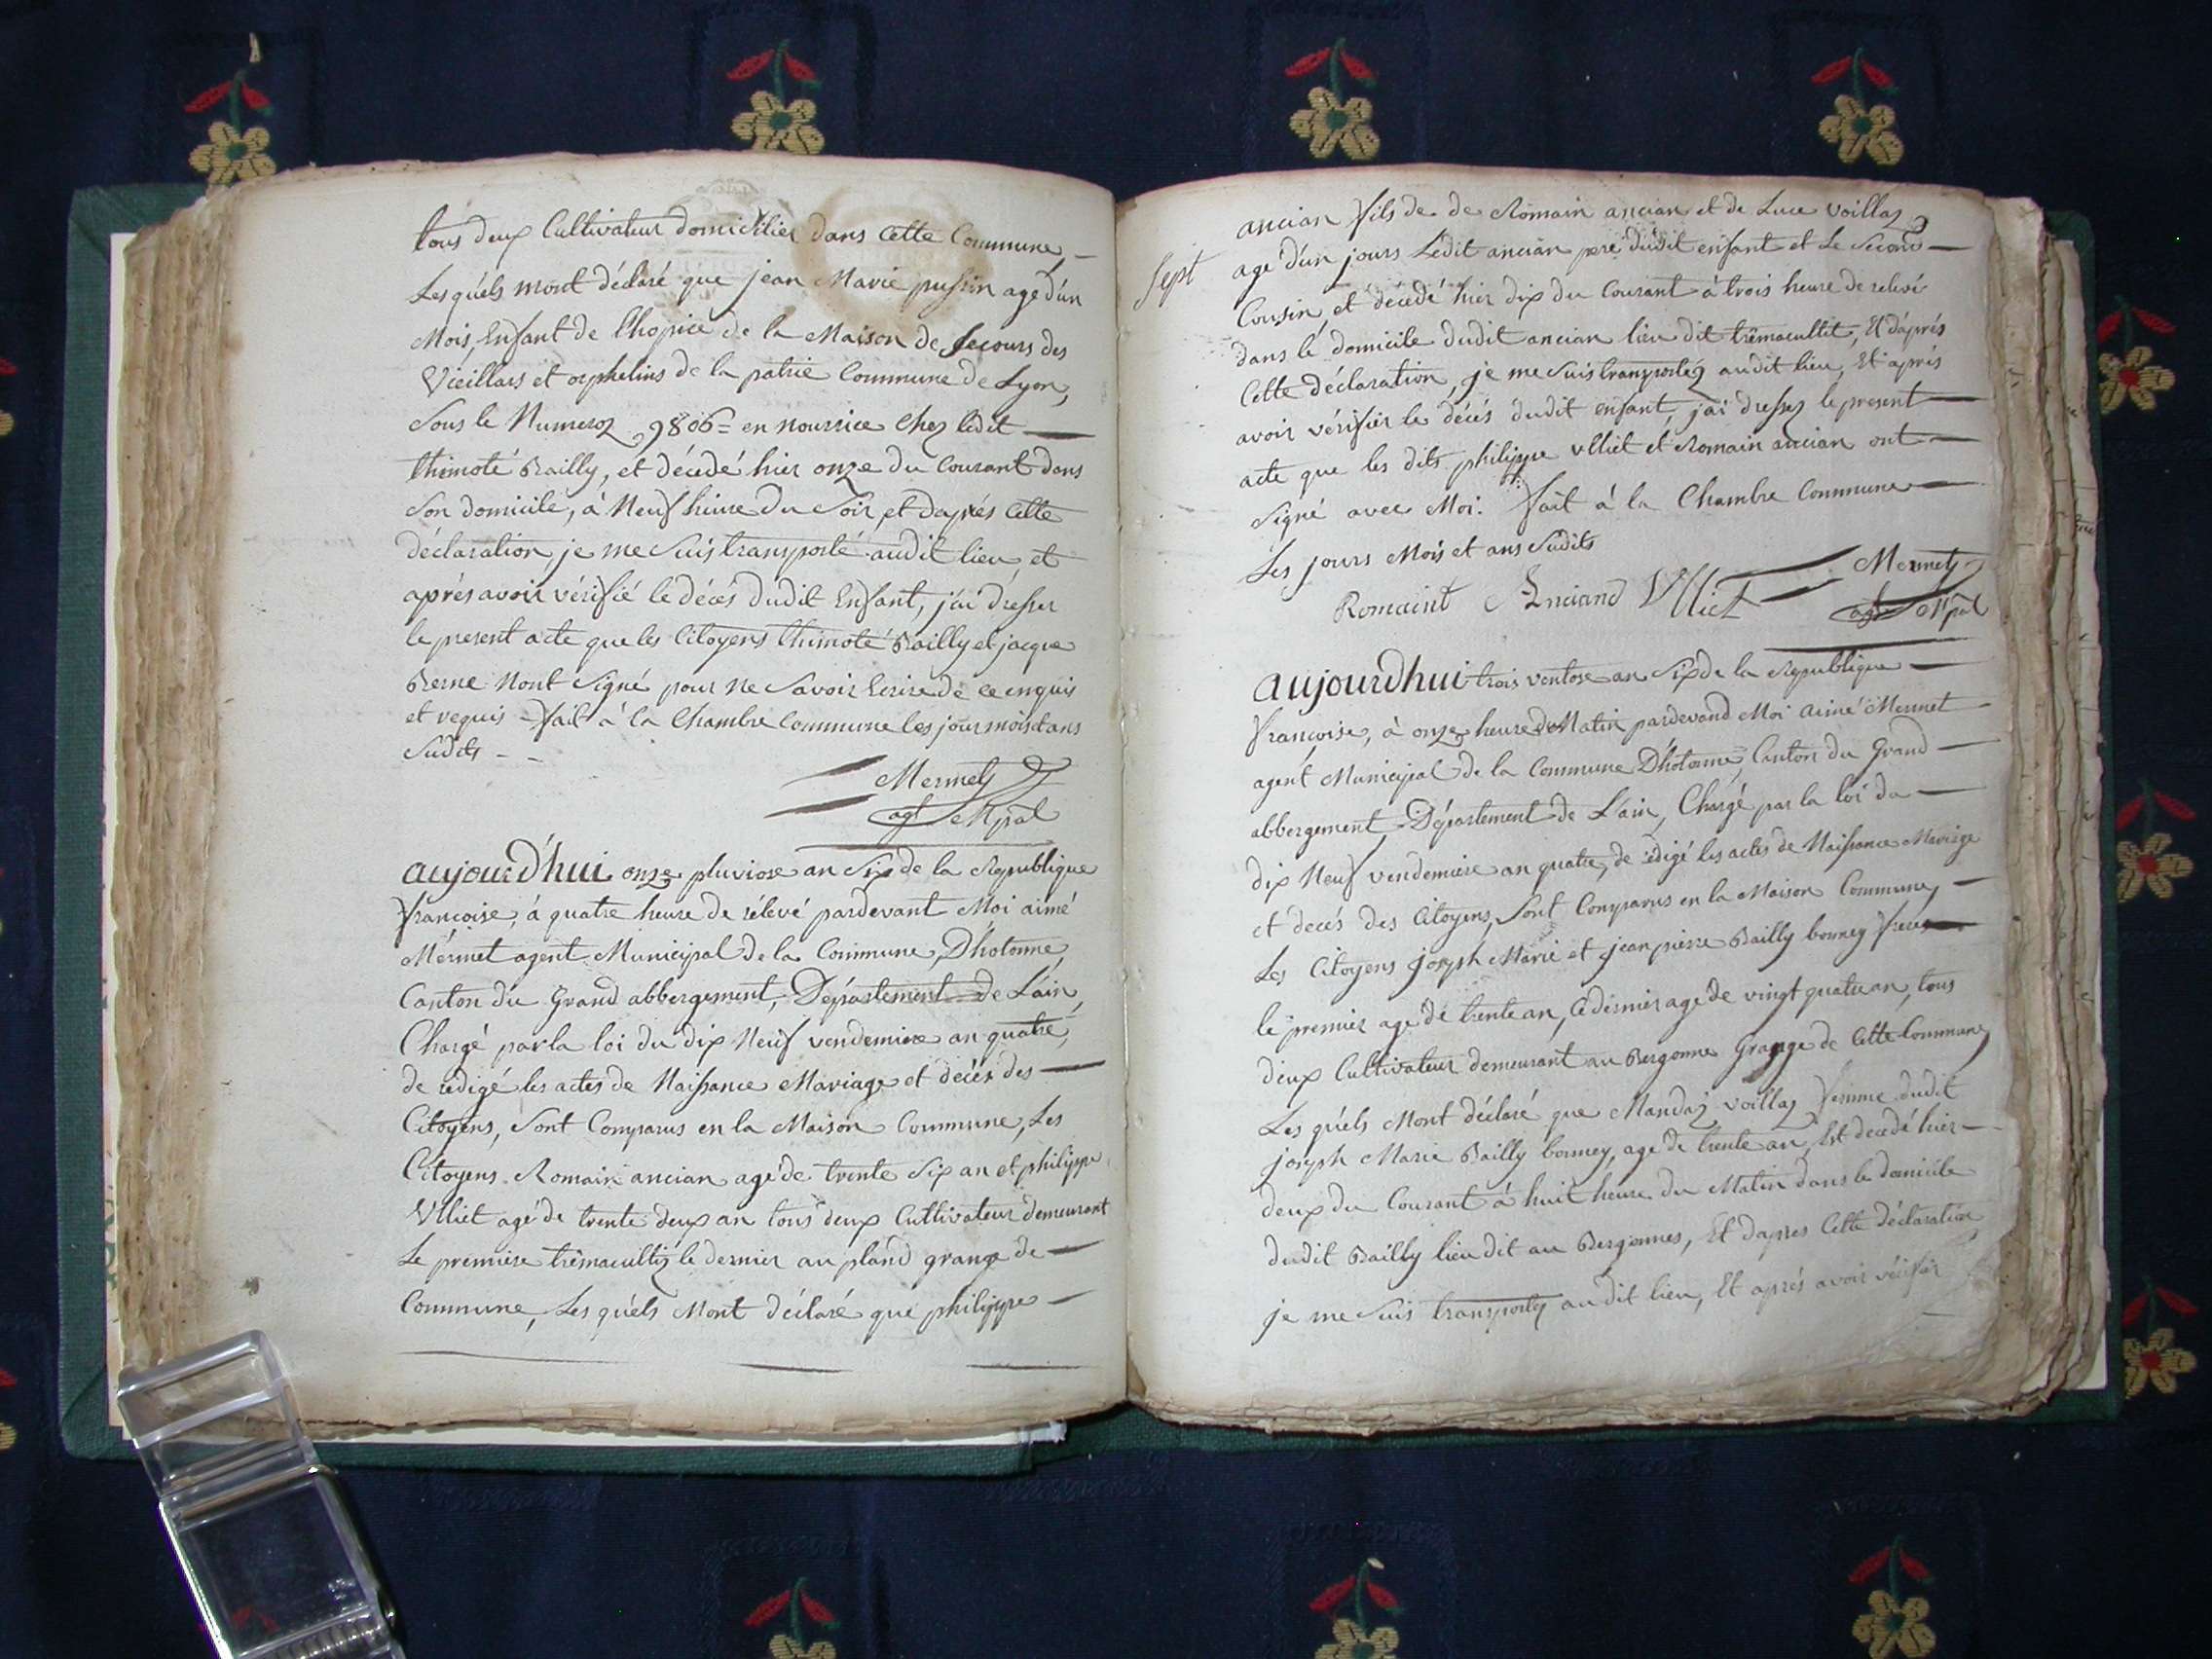 tous deux Cultivateur domicilier dans cette Commune
Lesquéls mont déclaré que jean Marie pussin agé dún
Mois, Enfant de lhopice de la Maison de Secours des
Vieillars et orphelins de la patrie Commune de Lyon,
Sous le Numeroz 9806 = en nourrice Chez ledit
thimoté Bailly, et décedé hier onze du Courant dans
Son domicile, à Neuf heure du Soir, et daprés Cette
déclaration, je me Suis transporté audit lieu, et
aprés avoir vérifié le décés dudit Enfant, j'ai dresser
le present acte que les Citoyens thimoté Bailly et jacque
Berne Nont Signé pour Ne Savoir Ecrire de ce enquis
et requis - fait à la Chambre Commune les jour mois et ans
Sudits - -
Mermet
agt Mpal
aujourd'hui onze pluviose an Six de la Republique
françoise, á quatre heure de rélevé pardevant Moi aimé
Mérmet agent Municipal de la Commune D'hotonne,
Canton du Grand abbergement, Département de L'ain,
Chargé par la loi du dix Neuf vendemiere an quatre,
de rédigé les actes de Naissance Mariage et décés des
Citoyens, Sont Comparus en la Maison Commune, Les
Citoyens Romain ancian agé de trente Six an et philippe
Ulliet agé de trente deux an tous deux Cultivateur demeurant
Le premiere trêmacultiz le dernier au pland grange de
Commune, Lesquéls Mont déclaré que philippe
ancian fils de de Romain ancian et de Luce Voillaz
Sept
agé d'un jours Ledit ancian pere dudit enfant et Le Second
Cousin, et décedé hier dix du Courant á trois heure de relevé
dans lé domicile dudit ancian lieu dit trêmacultit, Et d'aprés
Cette déclaration, je me Suis transportéz audit lieu, Et aprés
avoir vérifier le décés dudit enfant, jai dressez le present
acte que les dits philippe Ulliet et Romain ancian ont
Signé avec Moi. fait à la Chambre Commune
Les jours Mois et ans Sudits
Romaint Anciand Ulliet Mermet
agt Mpal
aujourd'hui trois ventose an Six de la Republique
françoise, à onze heure du Matin pardevand Moi aimé Mermet
agent Municipal de la Commune D'hotonne, Canton du Grand
abbergement, Département de L'ain, Chargé par la loi du
dix Neuf vendemiere an quatre, de rédigé les actes de Naissance Mariage
et decés des Citoyens, Sont Comparus en la Maison Commune,
Les Citoyens joseph Marie et jean pierre Bailly bonney freres
le premier agé de trente an, Le dernier agé de vingt quatre an, tous
deux Cultivateur demeurant au Bergonne Grange de Cette Commune
Lesquéls Mont déclaré que Mandaz Voillaz femme dudit
joseph Marie Bailly bonney, agé de trente an, Est decedé hier
deux du Courant á huit heure du Matin dans le domicile
dudit Bailly lieu dit au Bergonnes, Et dapres Cette déclaration
je me Suis transportez audit lieu, Et aprés avoir vérifier